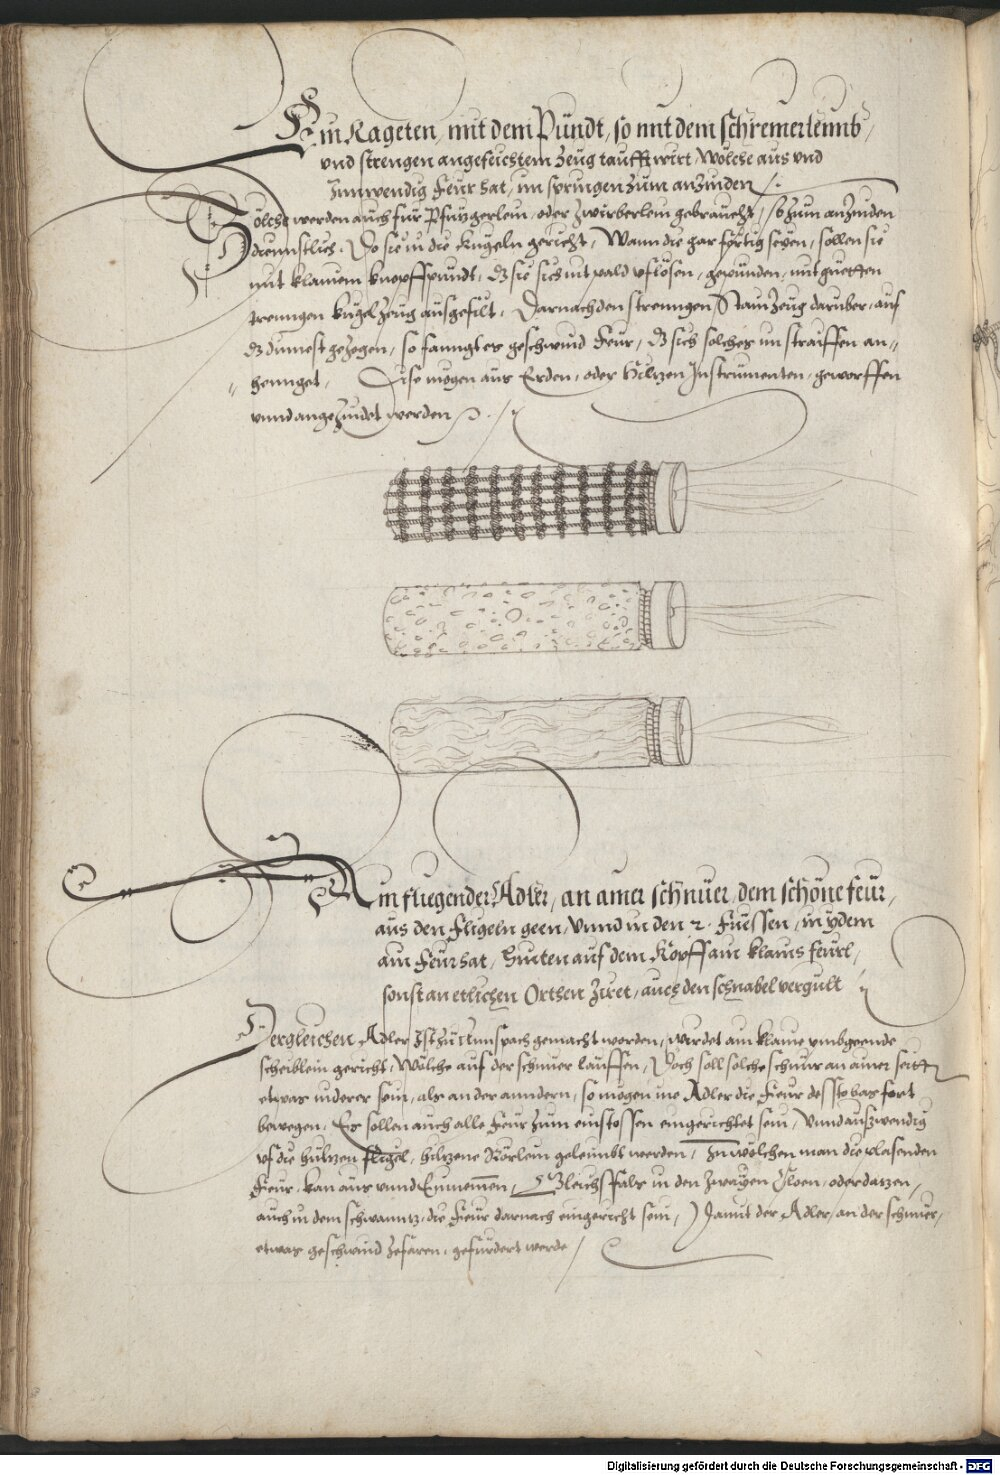 Ein Rageten, mit dem Pundt, so mit dem schremerleunb,
und strengen angefeichtem Zeug taufft wirt, Wölche aus und
Innwendig Feur hat, im springen Zum anzinden
Sölche werden auch für Pfutzgerlein, oder Zwirberlein gebraucht, so Zum anzenden
dieunstlich. Do sie in die Kugeln gericht, Wann die gar fertig seyen, sollen sie
mit klainem knopffpundt, dz sie sich nit pald uflösen, gepunden, mit guetten
prenngen Kugel Zeug ausgefilt. Darnach den strenngen Zeug daruber, auf
dz dinnest gezogen, so fanngt er geschwind Feur, dz sich solcher im straiffen an-
henngt. Dise mögen aus Erden, oder hiltzen Instrumenten, geworffen
unnd angezindet werden
Ain fliegender Adler, an ainer schnuer, dem schöne feur,
aus den Fligeln geen, Unnd in den 2. Fuessen, in ydem
ain Feur hat, hinten auf dem Kopff ain klains feurl,
sonst an etlichen Orthen Ziret, auch den schnabel vergult
Dergleichen Adler Ist Zu Innspach gemacht worden, wirdet ain klaine umbgeende
scheiblein gericht, Wölche auf der schnuer lauffen, Doch soll solche schnur an ainer seitten
etwas niderer sein, als an der anndern, so mögen die Adler die Feur dessto bas fort
bewegen. Es sollen auch alle Feur Zum einstossen eingerichtet sein, Unnd auswendig
uf die hultzen fligel, hiltzene Rörlein geleimbt werden, In wölchen man die plasenden
Feur, kan aus unnd Einnemen, Gleichsfals in den Zwayen Kloen, oder datzen,
auch in dem schwanntz, die Feur darnach eingericht sein, Damit der Adler, an der schnuer,
etwas geschwind Zefaren, gefürdert werde
Digitalisierung gefördert durch die Deutsche Forschungsgemeinschaft - DFG